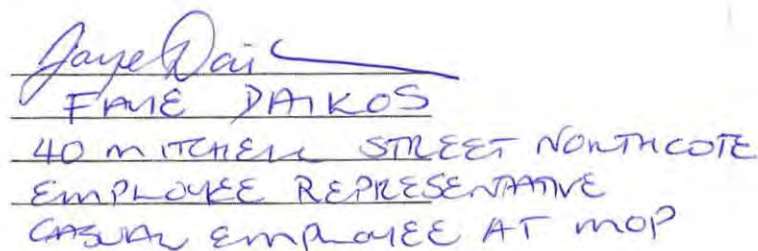 Faye Dai
FAYE DAIKOS
40 MITCHELL STREET NORTHCOTE
EMPLOYEE REPRESENTATIVE
CASUAL EMPLOYEE AT MOP